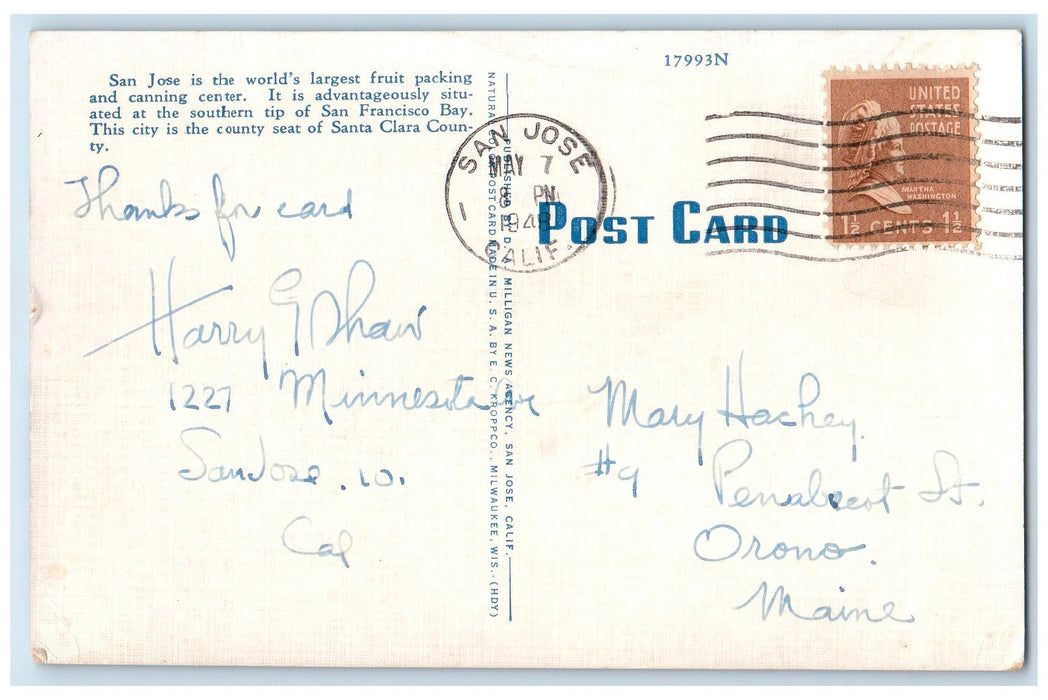 17993N
San Jose is the world's largest fruit packing
and canning center. It is advantageously situ-
ated at the southern tip of San Francisco Bay.
This city is the county seat of Santa Clara Coun-
ty.
Thanks for card
Harry G Shaw
1227 Minnesota
San Jose. 10.
Cal
PUBLISHED BY D. A. MILLIGAN NEWS AGENCY, SAN JOSE, CALIF.
NATURAL POST CARD MADE IN U. S. A. BY E. C. KROPP CO., MILWAUKEE, WIS.-(HDY)
SAN JOSE
MAY 7
8 PM
1948
CALIF.
1
POST CARD
UNITED
STATES
POSTAGE
MARTHA
WASHINGTON
1½ CENTS 1½
Mary Hachey.
#9 Penabscot St.
Orono.
Maine